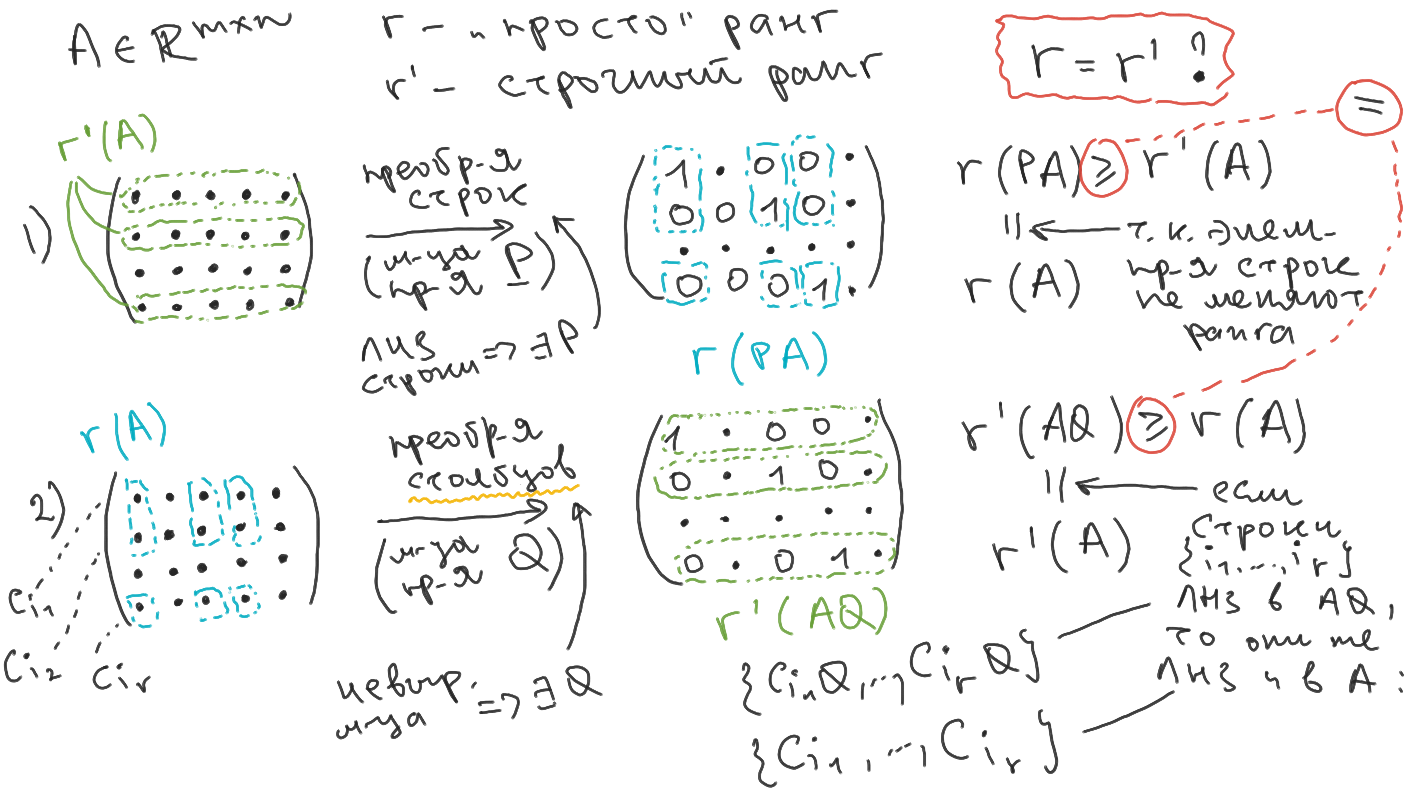 A ∈ ℝ^{m×n}
r – „просто" ранг
r' – строчный ранг
r = r' ?
=
r'(A)
1)
преобр-я
строк
(м-ца
пр-я P)
ЛНЗ
строки => ∃P
1 · 0 0 ·
0 0 1 0 ·
· · · · ·
0 0 0 1 ·
r(PA)
r(PA) ≥ r'(A)
|| ← т.к. элем-
r(A) пр-я строк
не меняют
ранга
r(A)
2)
c_{i_1}
c_{i_2} c_{i_r}
преобр-я
столбцов
(м-ца
пр-я Q)
невыр.
м-ца => ∃Q
1 · 0 0 ·
0 · 1 0 ·
· · · · ·
0 · 0 1 ·
r'(AQ)
r'(AQ) ≥ r(A)
|| ← если
r'(A) строки
{i_1,...,i_r}
ЛНЗ в AQ,
то они же
ЛНЗ и в A:
{c_{i_1}Q,...,c_{i_r}Q}
{c_{i_1},...,c_{i_r}}